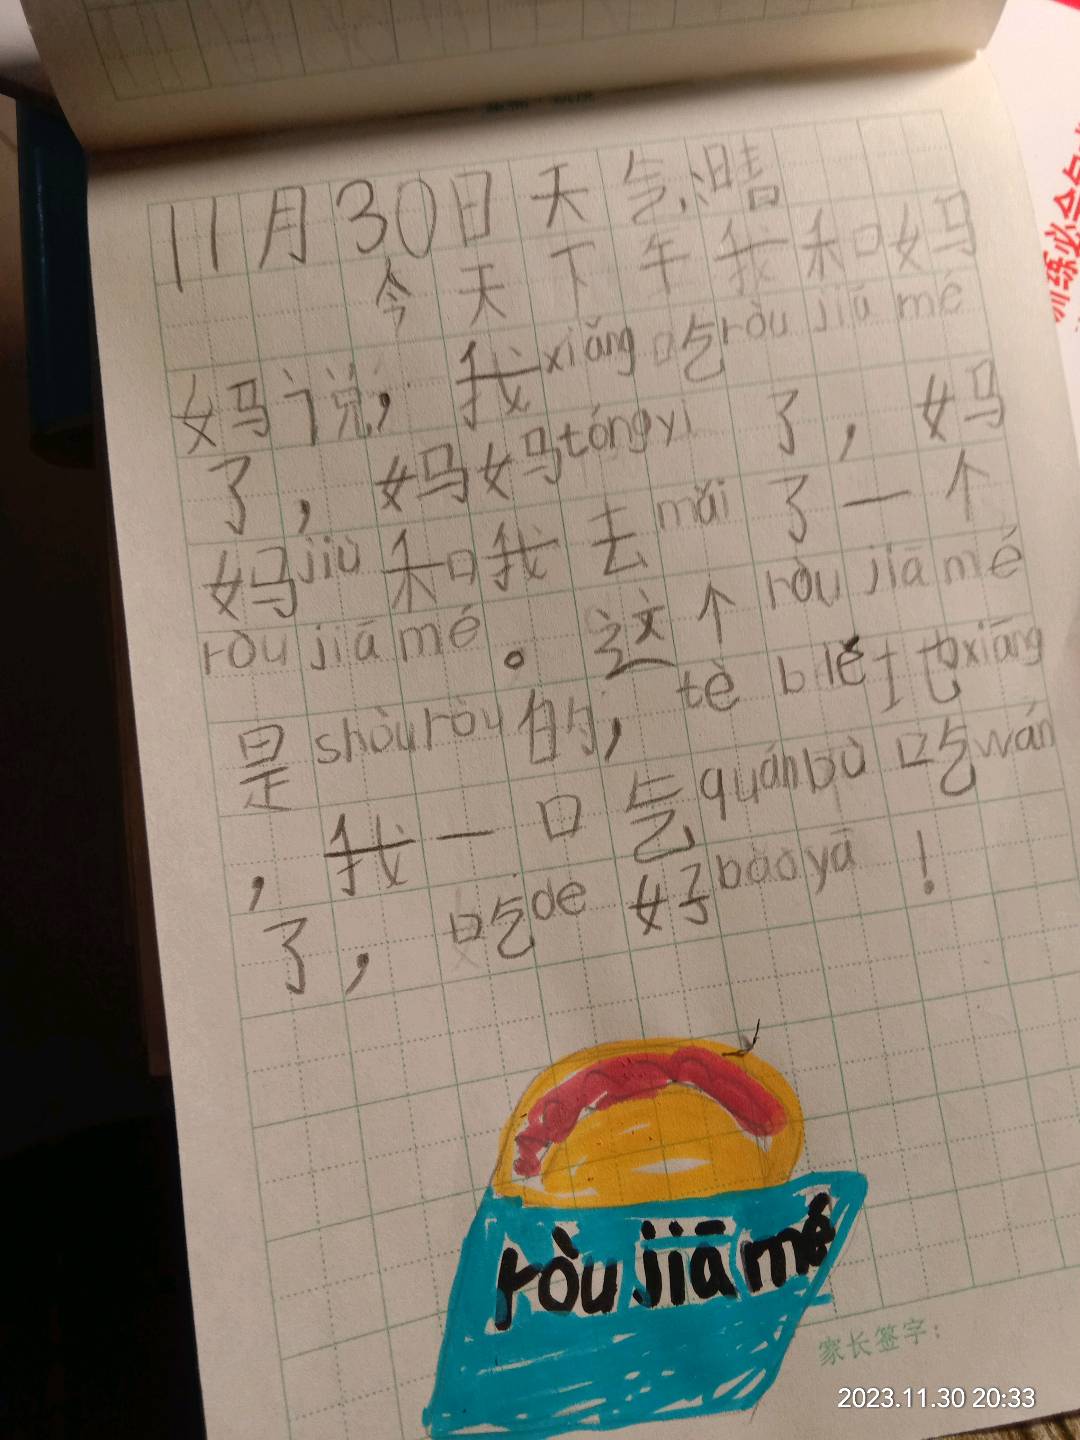 11月30日天气晴
今天下午我和妈
妈说，我xiǎng吃ròu jiā mé
了，妈妈tóngyì了，妈
妈jiù和我去mǎi了一个
ròu jiā mé。这个ròu jiā mé
是shòuròu的，tè bié土也xiāng
，我一口气quánbù吃wán
了，吃de好bǎoyā！
ròu jiā mé
家长签字：
2023.11.30 20:33